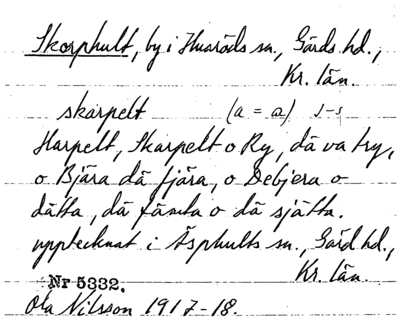 Skorphult, by i Huaröds sn., Gärds hd.,
Kr. län.
skarpelt (a = a) s-s
Harpelt, Skarpelt o Ry, dä va try,
o Bjära dä fjära, o Debjera o
dätta, dä fämta o dä sjätta.
upptecknat i Äsphults sn., Gärd hd.,
Kr. län.
Nr 5332.
Ola Nilsson 1917-18.